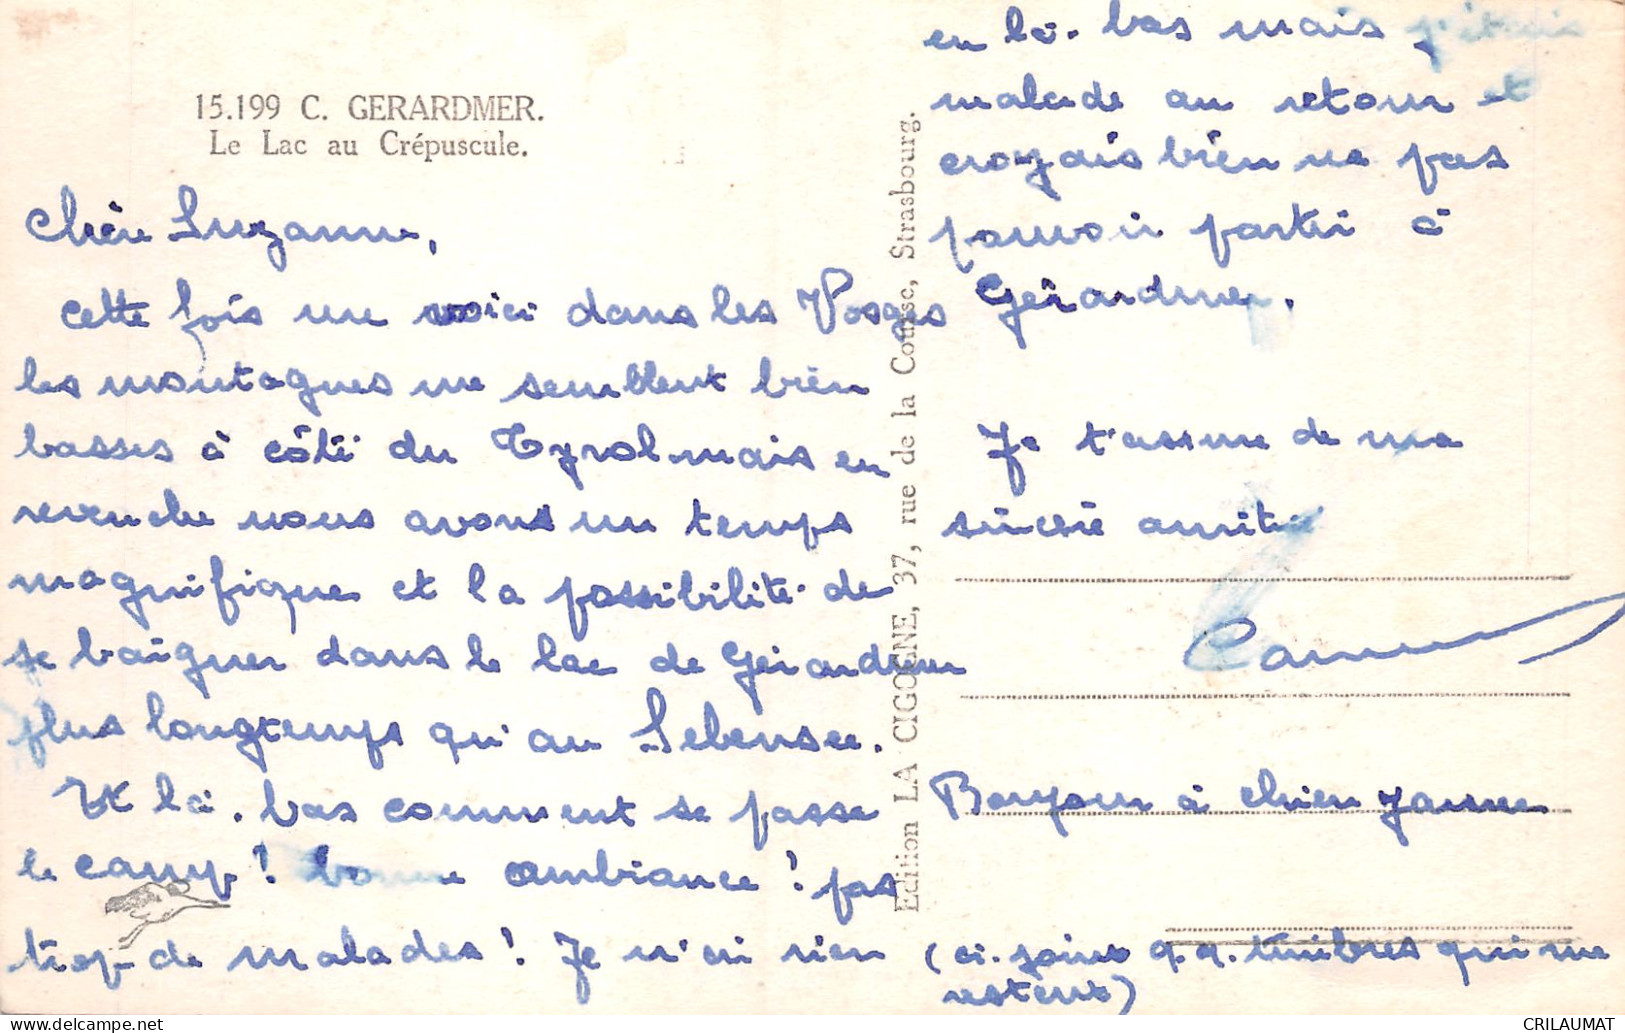 15.199 C. GERARDMER.
Le Lac au Crépuscule.
Chère Suzanne,
cette fois me voici dans les Vosges
les montagnes me semblent bien
basses à côté du Tyrol mais en
revanche nous avons un temps
magnifique et la possibilité de
se baigner dans le lac de Gérardmer
plus longtemps qu'au
Et là-bas comment se passe
le camp ! bonne ambiance ! pas
trop de malades ! Je n'ai rien
Edition LA CIGOGNE, 37, rue de la Course, Strasbourg.
eu là-bas mais j'étais
malade au retour et
croyais bien ne pas
pouvoir partir à
Gérardmer.
Je t'assure de ma
sincère amitié
Bonjour à
(ci-joint q.q. timbres qui me
restent)
CRILAUMAT